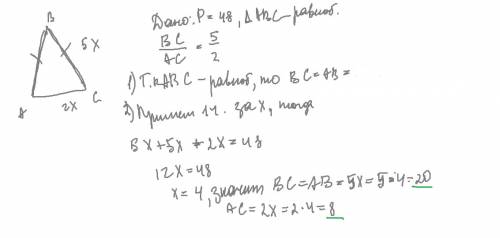 Дано: P = 48, ΔABC - равноб.
BC/AC = 5/2
B
5x
A
2x
C
1) Т.к ABC - равноб, то BC = AB =
2) Примем 1ч. за x, тогда
5x + 5x + 2x = 48
12x = 48
x = 4, значит BC = AB = 5x = 5·4 = 20
AC = 2x = 2·4 = 8